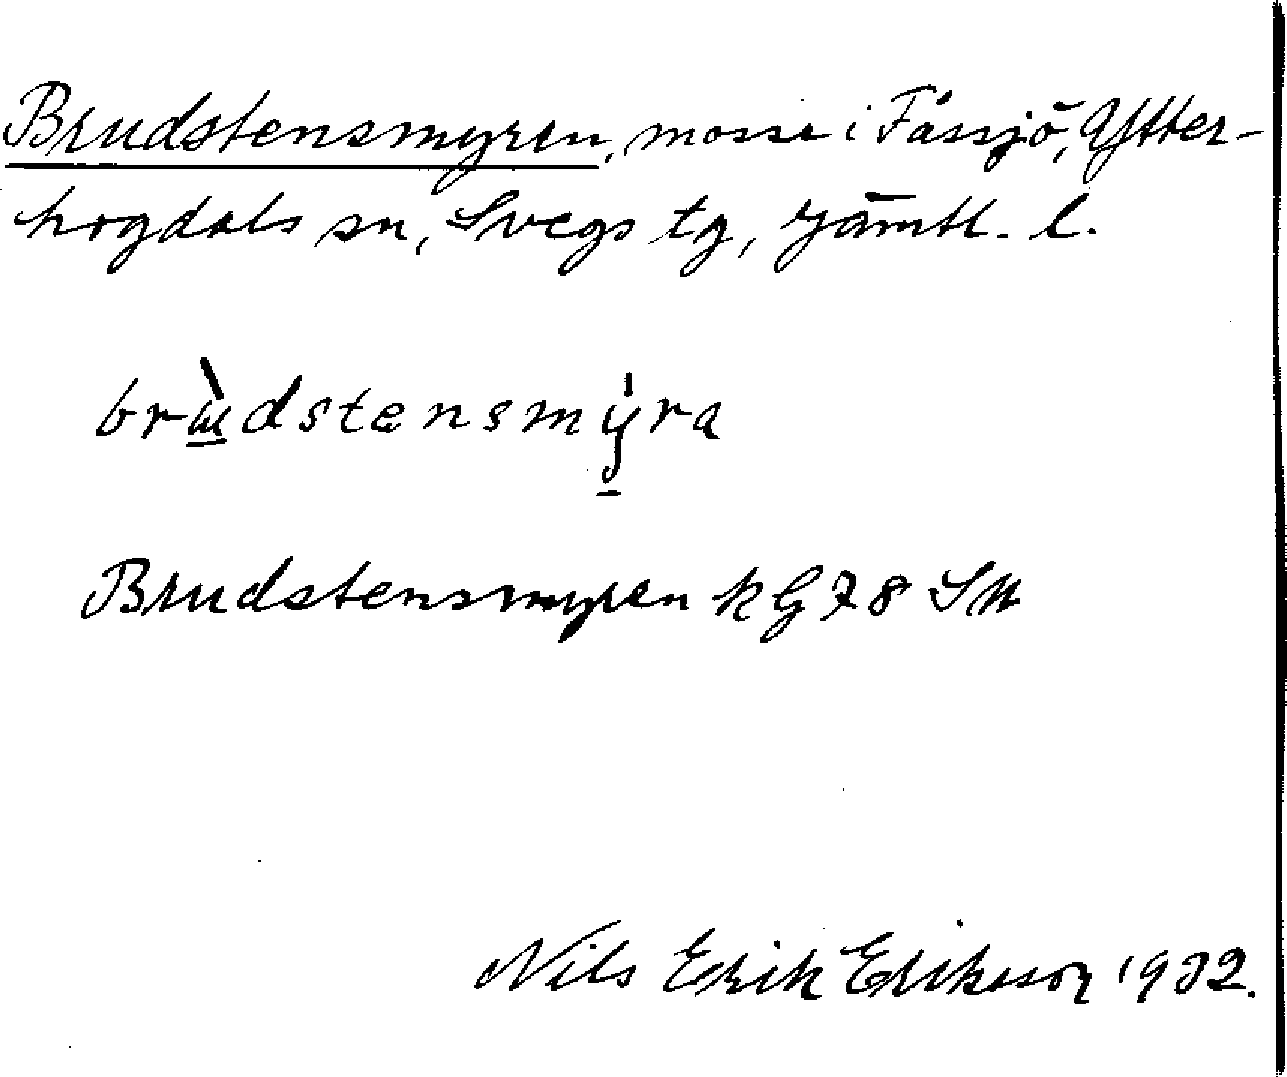 Brudstensmyren, mosse i Fåssjö, Ytter-
hogdals sn, Svegs tg, Jämtl. l.
brù̱dstensmy̱̍ra
Brudstensmyren kG78 SV
Nils Erik Eriksson 1932.